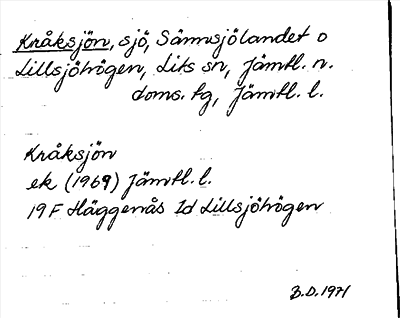 Kråksjön, sjö, Sännsjölandet o
Lillsjöhögen, Lits sn, Jämtl. n.
doms. tg, Jämtl. l.
Kråksjön
ek (1969) Jämtl. l.
19 F Häggenås 1d Lillsjöhögen
B.D. 1971